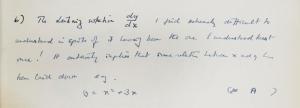 b) The Leibniz notation dy/dx I find extremely difficult to
understand in spite of it having been the one I understood best
once! It certainly implies that some relation between x and y has
been laid down e.g.
y = x² + 3x